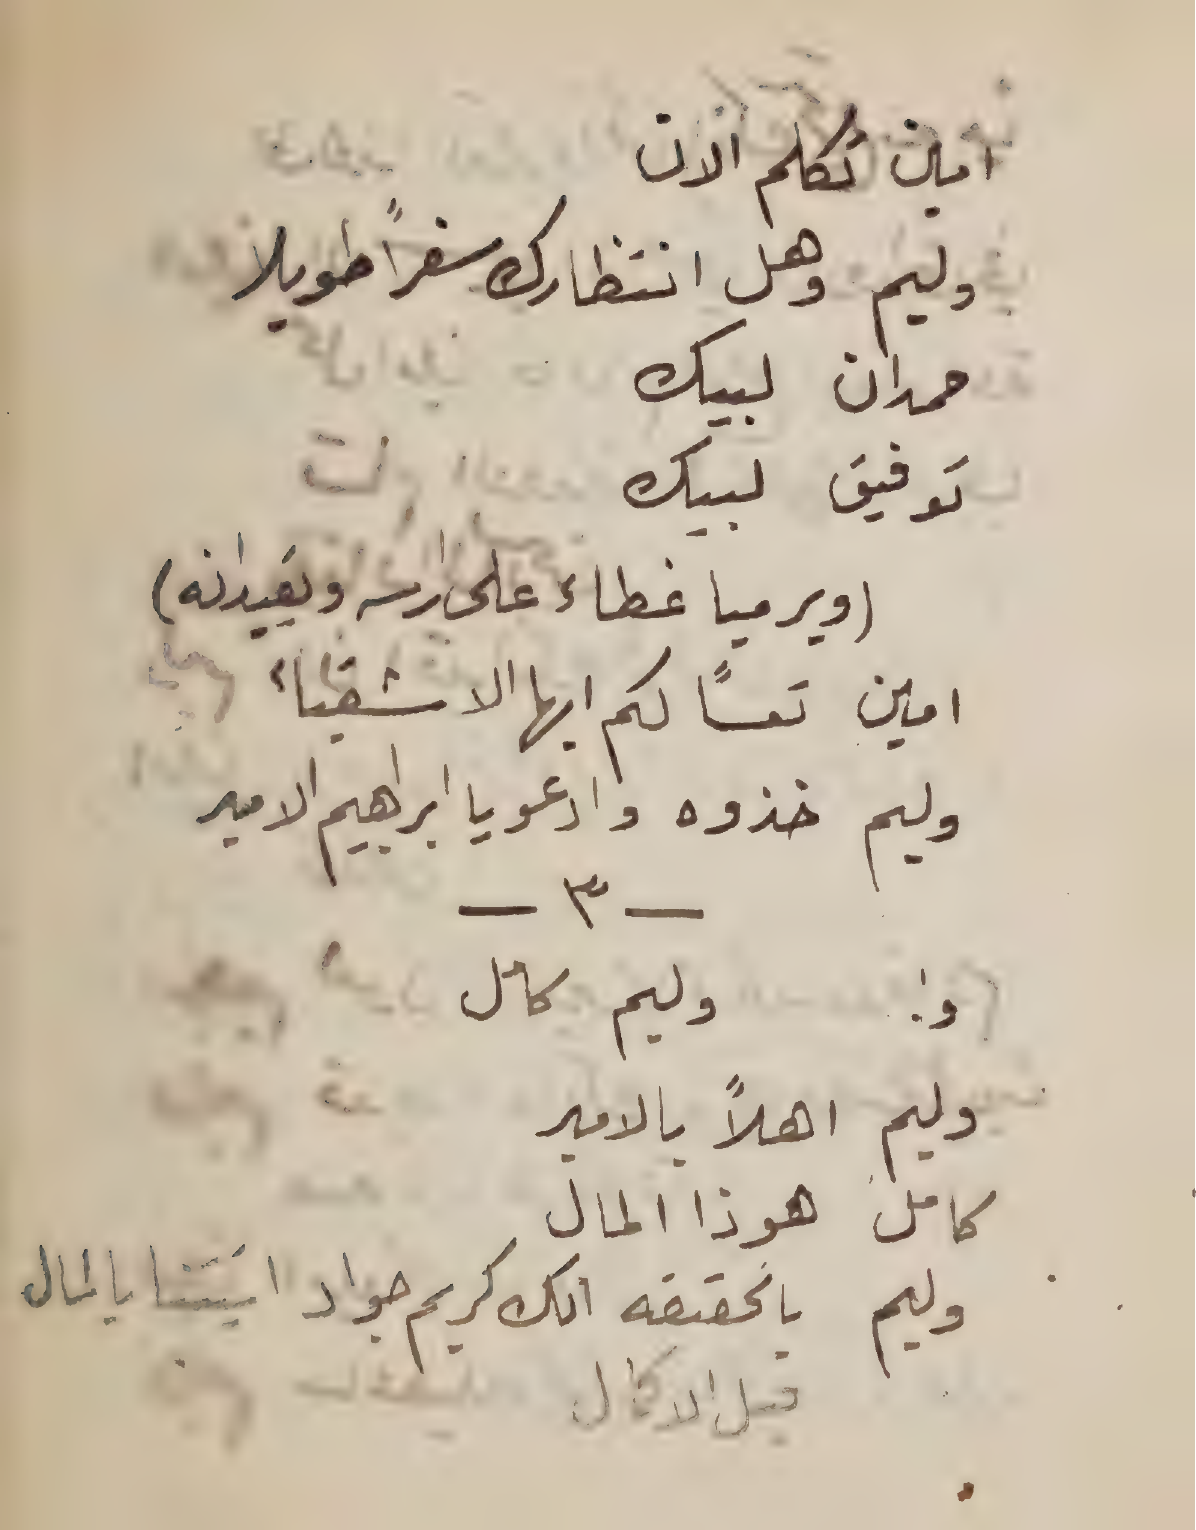 امين تكلم الان
وليم وهل انتظارك سفراً طويلا
حمدان لبيك
توفيق لبيك
(ويرميا غطاء على راسه ويقيدانه)
امين تعساً لكم ايها الاشقياء
وليم خذوه وادعو يا ابراهيم الامير
— ٣ —
و: وليم كامل
وليم اهلاً بالامير
كامل هوذا المال
وليم بالحقيقه انك كريم جواد اتيتنا بالمال
قبل الاكمال